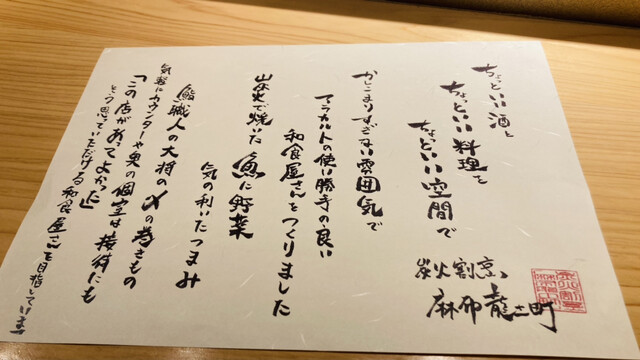 ちょっといい酒と
ちょっといい料理を
ちょっといい空間で
かしこまりすぎない雰囲気で
アラカルトの使い勝手の良い
和食屋さんをつくりました
炭火で焼いた魚に野菜
気の利いたつまみ
鮨職人の大将の〆の巻きもの
気軽にカウンターや奥の個室は接待にも
「この店があってよかった」
と思っていただける和食屋さんを目指しています
炭火割烹
麻布龍土町